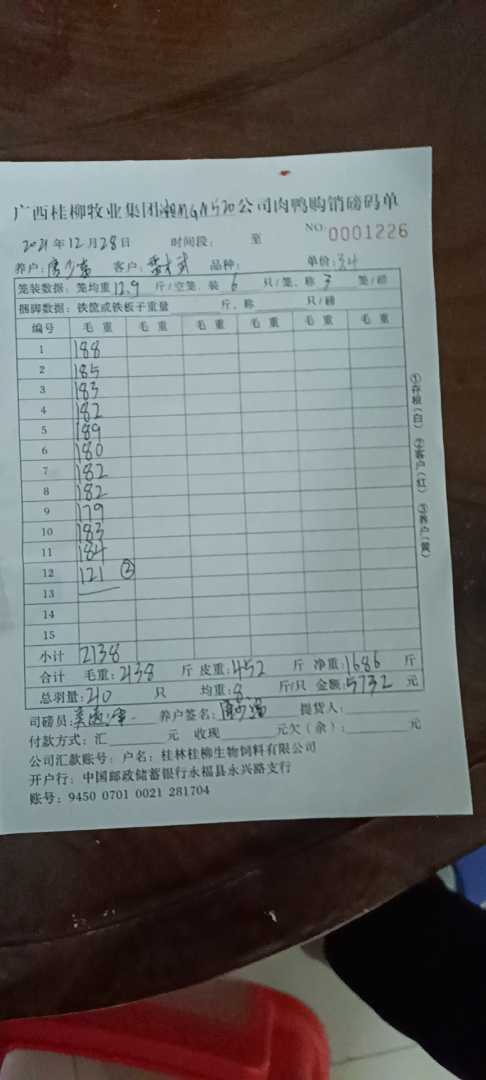 广西桂柳牧业集团湘AGA520公司肉鸭购销磅码单
2021年12月28日 时间段: 至 NO 0001226
养户: 客户: 品种: 单价:3.4
笼装数据:笼均重12.9斤/空笼、装6只/笼、称 笼/磅
捆脚数据:铁筐或铁板子重量 斤、称 只/磅
编号 毛重 毛重 毛重 毛重 毛重 毛重
1 188
2 185
3 183
4 182
5 189
6 180
7 182
8 182
9 179
10 183
11 184
12 121 ②
13
14
15
小计 2138
合计 毛重:2138 斤 皮重:452 斤 净重:1686 斤
总羽量:210 只 均重:8 斤/只 金额:5732 元
司磅员: 养户签名: 提货人:
付款方式:汇 元 收现 元欠(余): 元
公司汇款账号:户名:桂林桂柳生物饲料有限公司
开户行:中国邮政储蓄银行永福县永兴路支行
账号:9450 0701 0021 281704
①存根(白) ②客户(红) ③养户(黄)